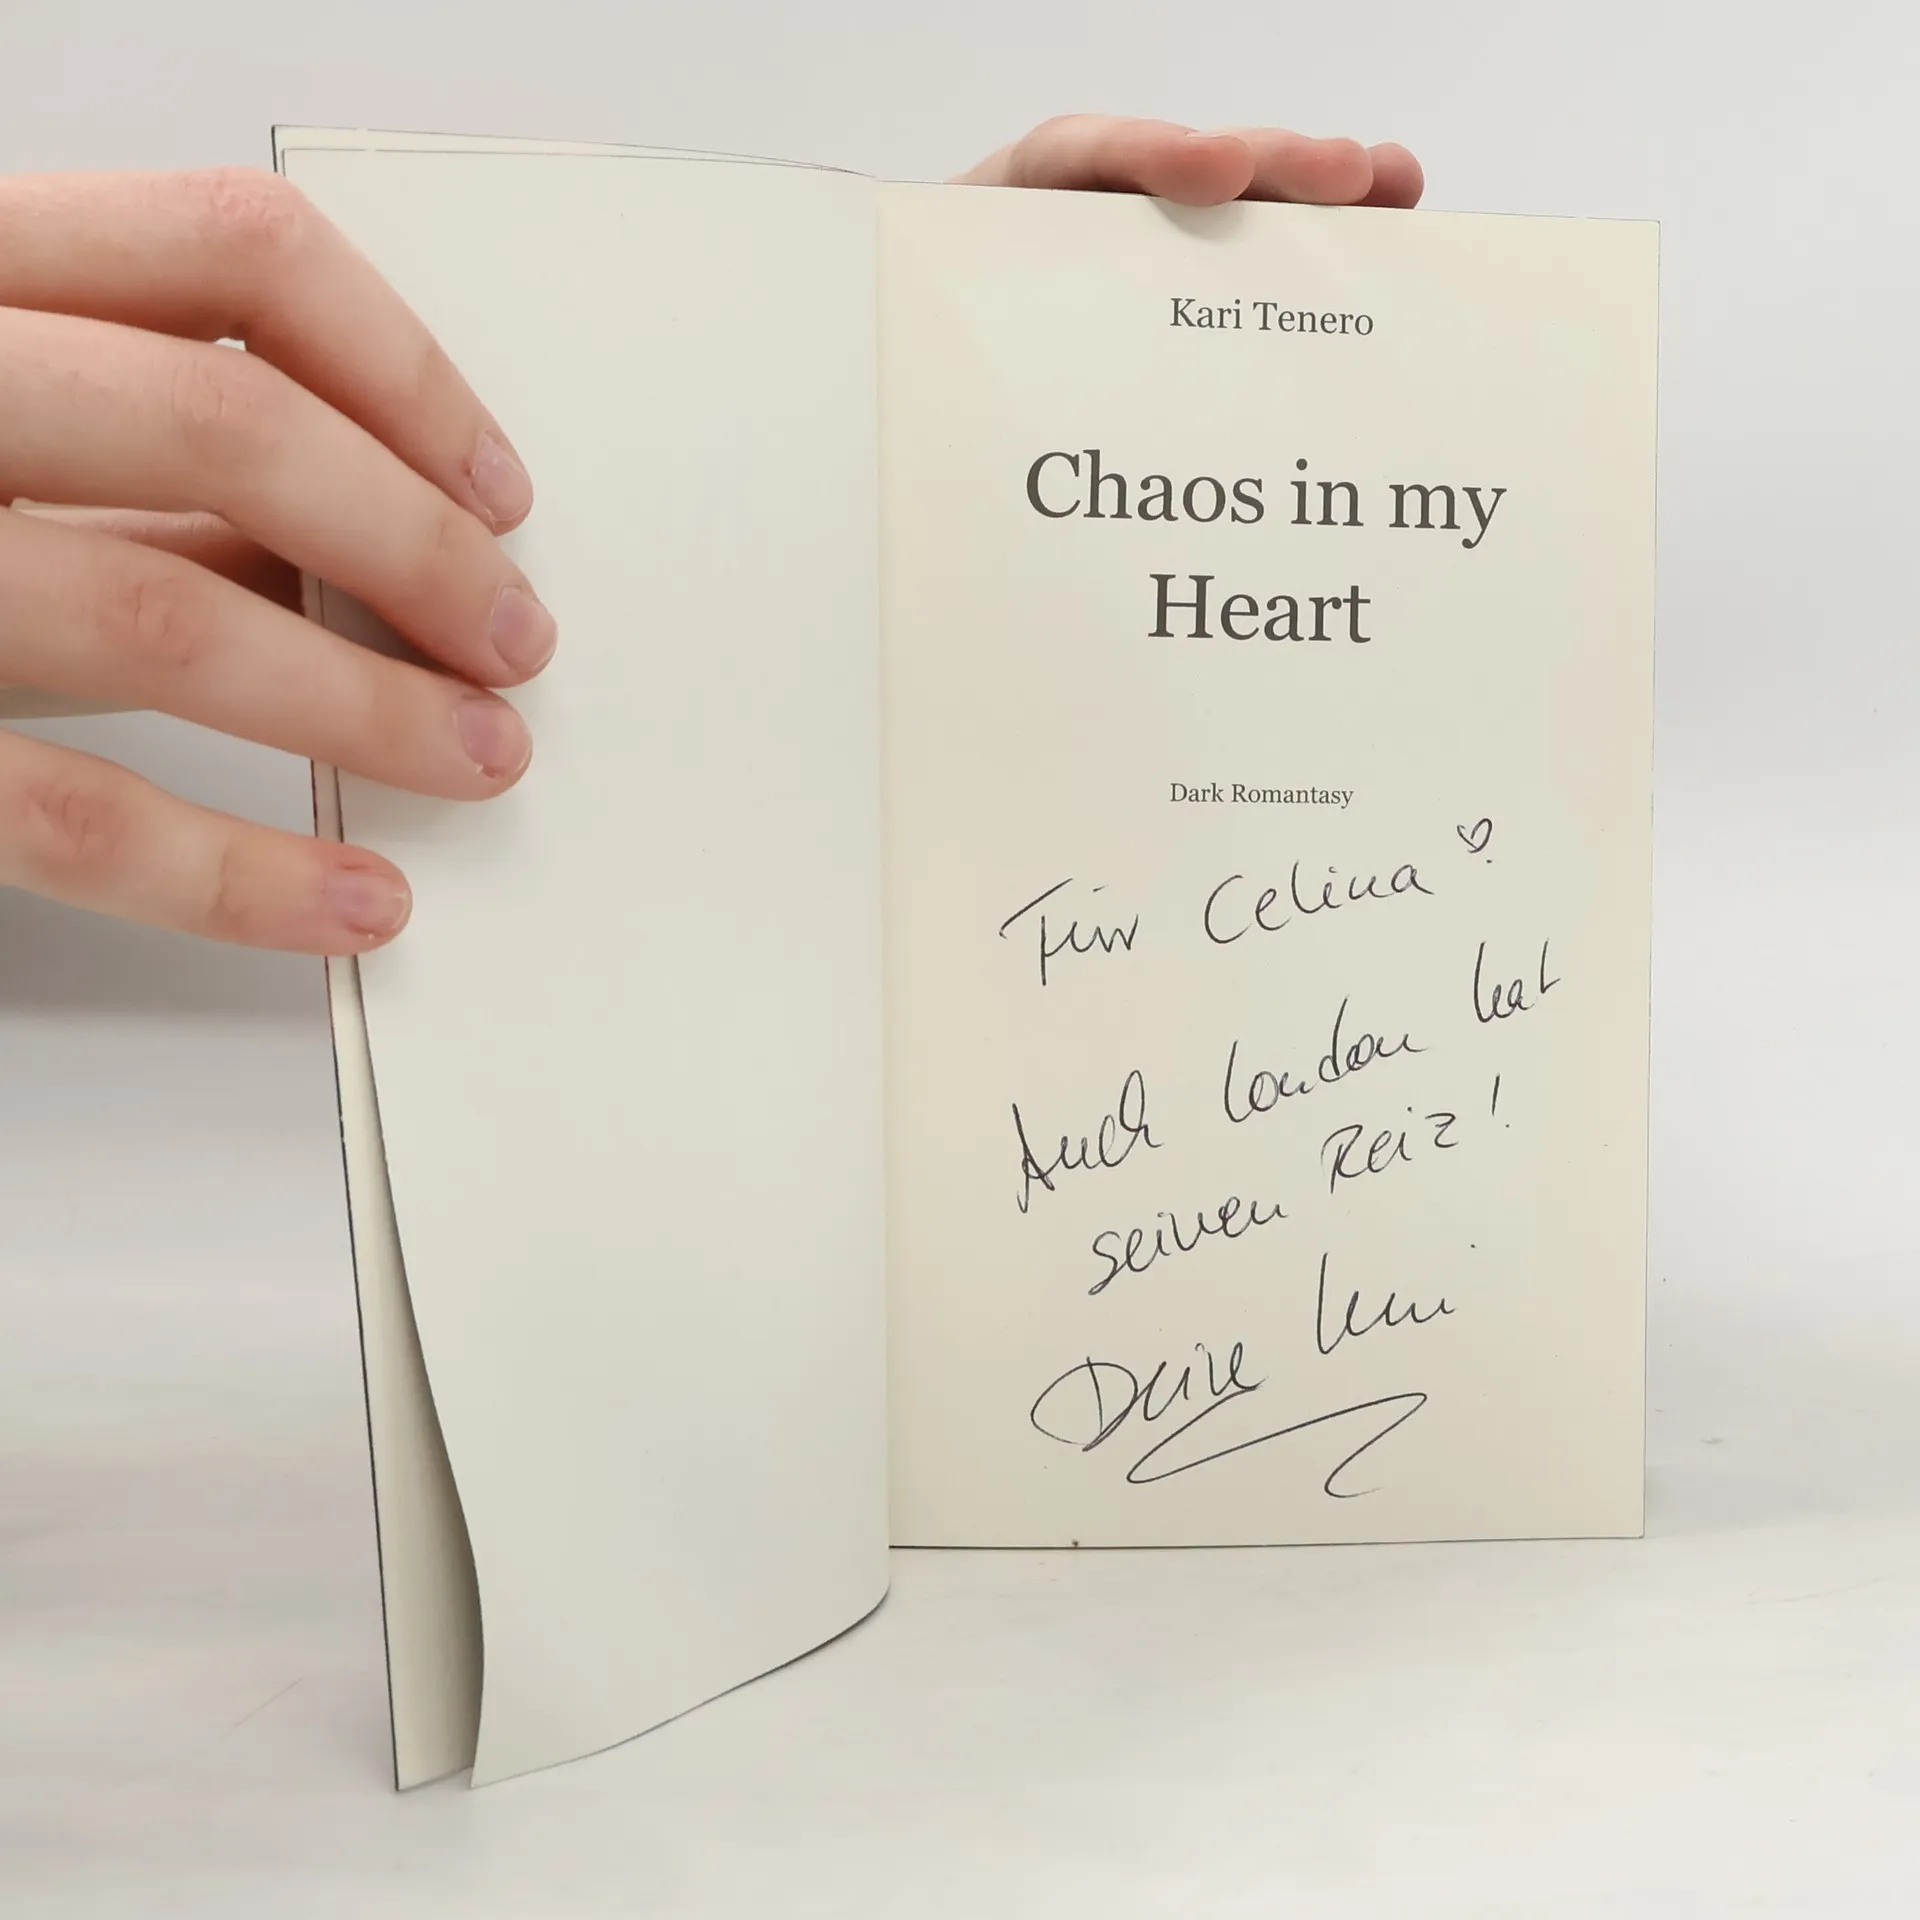 Kari Tenero
Chaos in my
Heart
Dark Romantasy
Für Celina ♡
Auch London hat
seinen Reiz!
Deine